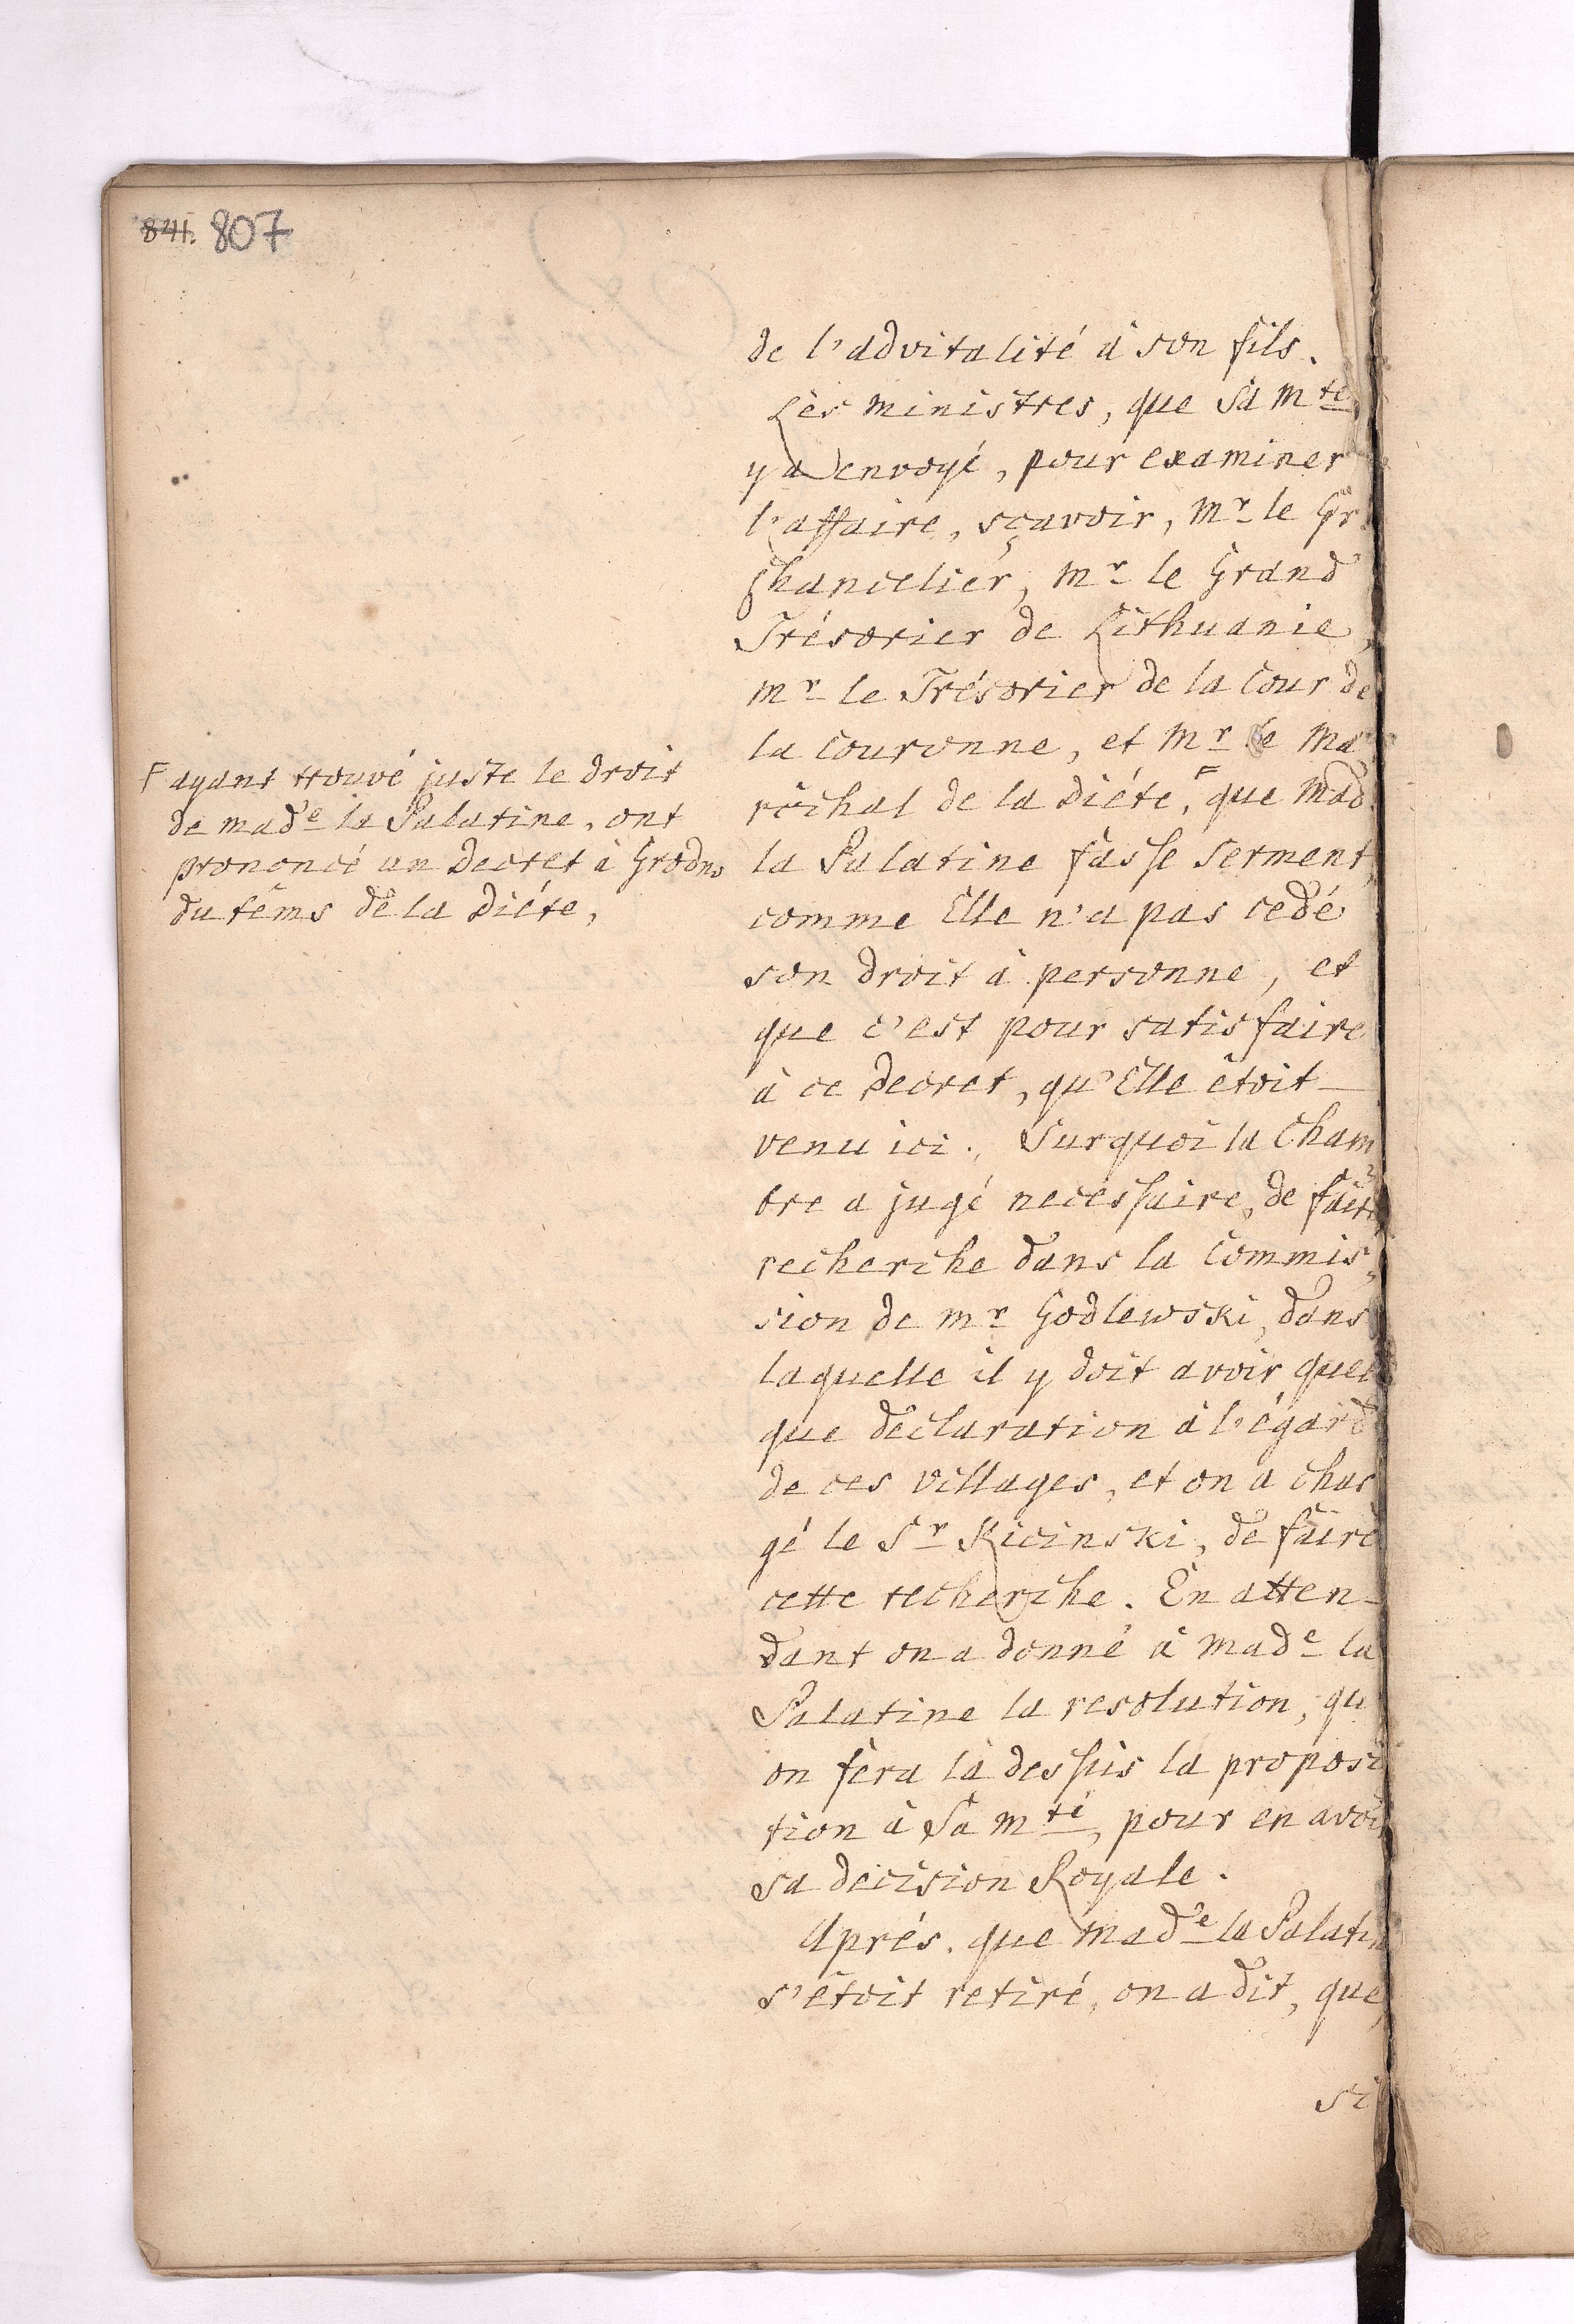 841. 807
de l'advitalité à son fils.
Les ministres, que Sa Mté
y a envoyé, pour examiner
l'affaire, sçavoir, Mr le Gr.
Chancelier, Mr le Grand
Trésorier de Lithuanie,
Mr le Trésorier de la Cour de
la Couronne, et Mr le Ma
réchal de la Diéte, F que Mad.
la Palatine fasse serment,
comme Elle n'a pas cedé
son droit à personne, et
que c'est pour satisfaire
à ce Decret, qu'Elle étoit
venu ici. Surquoi la Cham
bre a jugé necessaire, de faire
recherche dans la Commis
sion de Mr Godlewski, dans
laquelle il y doit avoir quel
que déclaration à l'égard
de ces villages, et on a char
gé le Sr Kicinski, de faire
cette recherche. En atten-
dant on a donné à Made la
Palatine la resolution, qu
on fera là dessus la proposi
tion à Sa Mté, pour en avoir
sa decision Royale.
Aprés. que Made la Palatin
s'étoit retiré, on a dit, que,
si
F ayant trouvé juste le droit
de Made la Palatine, ont
prononcé un Decret à Grodno
du têms de la Diéte,